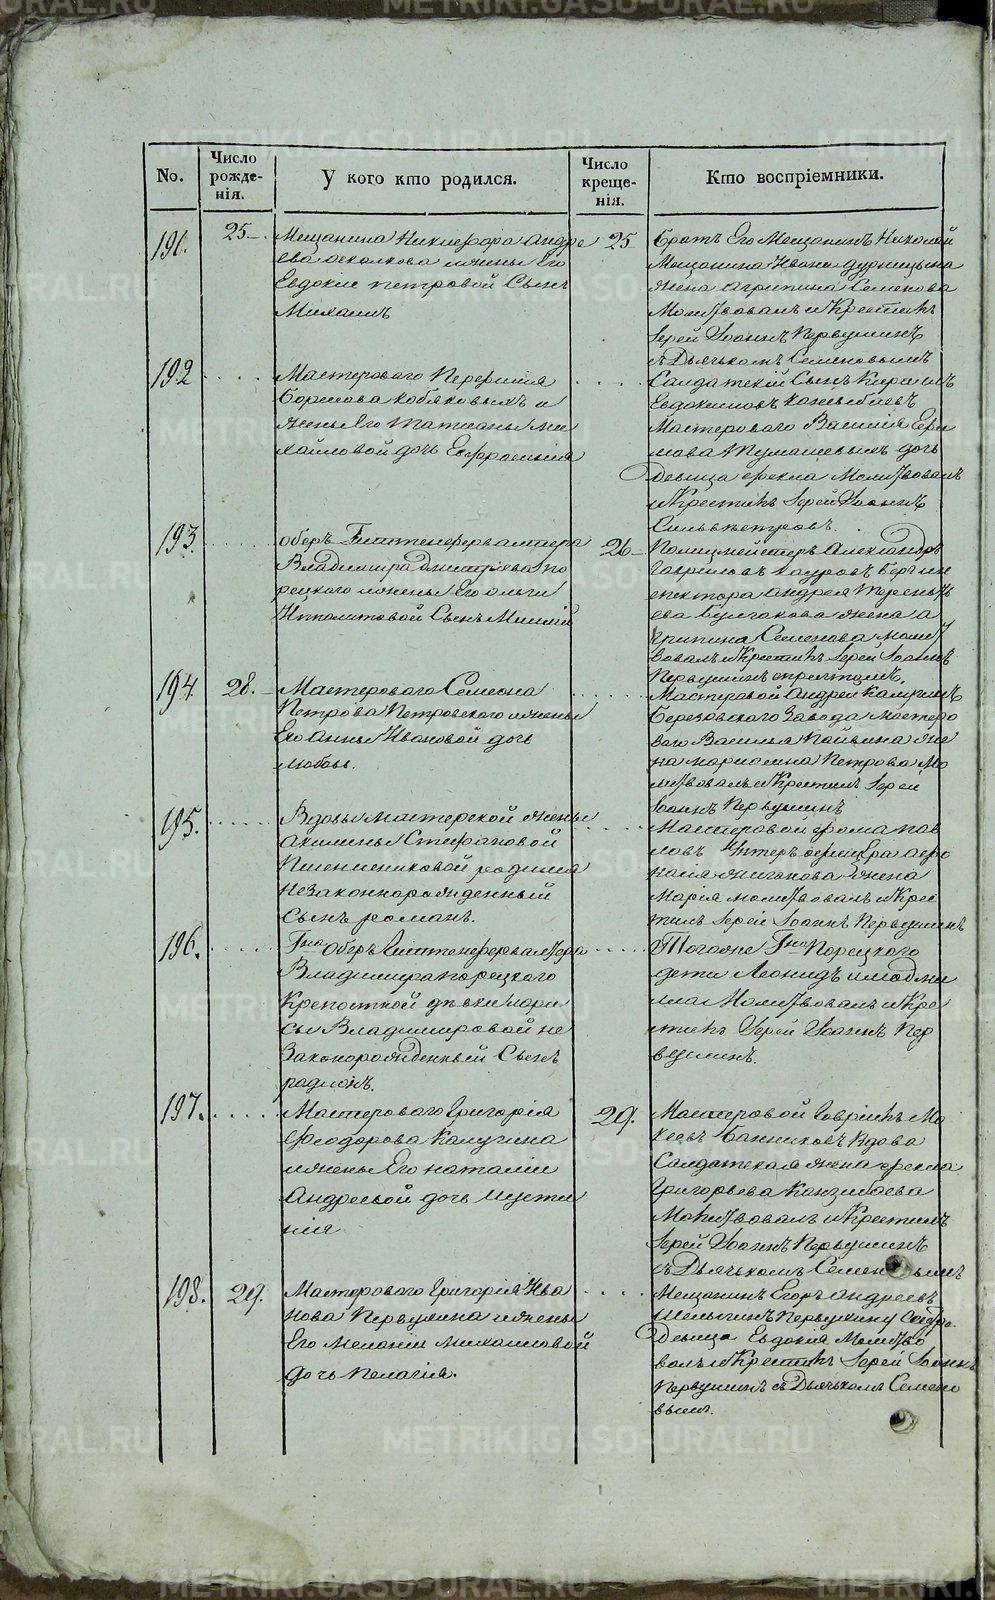 METRIKI.GASO-URAL.RU
No.
Число рожденія.
У кого кто родился.
Число крещенія.
Кто воспріемники.
191.
25
Мещанина Никифора Андре
ева жены Его
Евдокии Петровой Сынъ
Михаилъ
25
Братъ Его Мещанинъ Николай
Мещанина Ивана
жена Агрипина Семенова
Молитвовалъ и Крестилъ
Іерей Іоаннъ Первушинъ
съ Дьячькомъ Семеновымъ
192
Мастероваго
Борисова и
жены Его Татианы Ми
хайловой дочь Евфросинія
Салдатскій Сынъ Кирилъ
Евдокимовъ
Мастероваго Василія Ефи
мова дочь
девица Фекла Молитвовалъ
и Крестилъ Іерей Іоаннъ
193.
оберъ Гиттенфервалтера
Владимира Дмитріева По
рецкого и жены Его Ольги
Ипполитовой Сынъ
26
Полицмейстеръ Александръ
Гавриловъ Бергин
спектора Андрея Терентъ
ева Булгакова жена А
грипина Семенова Молит
вовалъ и Крестилъ Іерей Іоаннъ
Первушинъ
194.
28.
Мастероваго Семена
Петрова Петровского и жены
Его Анны Ивановой дочь
Любовь.
Мастеровой Андрей
Березовского Завода мастеро
вого Василья же
на Мариамна Петрова Мо
литвовалъ и Крестилъ Іерей
Іоаннъ Первушинъ
195.
Вдовы Мастерской жены
Акилины Стефановой
Пшенниковой родился
Незаконнорожденный
Сынъ Романъ.
Мастеровой Фома Пав
ловъ Унтеръ офицера
жена
Марія молитвовалъ и Крес
тилъ Іерей Іоаннъ Первушинъ
196.
Гна Оберъ Гиттенфервалтера
Владимира Порецкого
Крепостной девки Лари
сы Владимировой не
Законорожденный Сынъ
Родионъ.
Тогоже Гна Порецкого
дети Леонидъ и Людми
ла Молитвовалъ и Кре
стилъ Іерей Іоаннъ Пер
вушинъ.
197.
Мастероваго Григорія
Феодорова Калугина
и жены Его Наталіи
Андреевой дочь Иусти
нія
29.
Мастеровой Гаврилъ Мо
кеевъ Банниковъ Вдова
Салдатская жена Фекла
Григорьева
Молитвовалъ и Крестилъ
Іерей Іоаннъ Первушинъ
съ Дьячькомъ Семеновымъ
198.
29.
Мастероваго Григорія Ива
нова Первушина и жены
Его Меланіи Михайловой
дочь Пелагія.
Мещанинъ Егоръ Андреевъ
Первушину
девица Евдокия Молитво
валъ и Крестилъ Іерей Іоаннъ
Первушинъ съ Дьячькомъ Семено
вымъ.